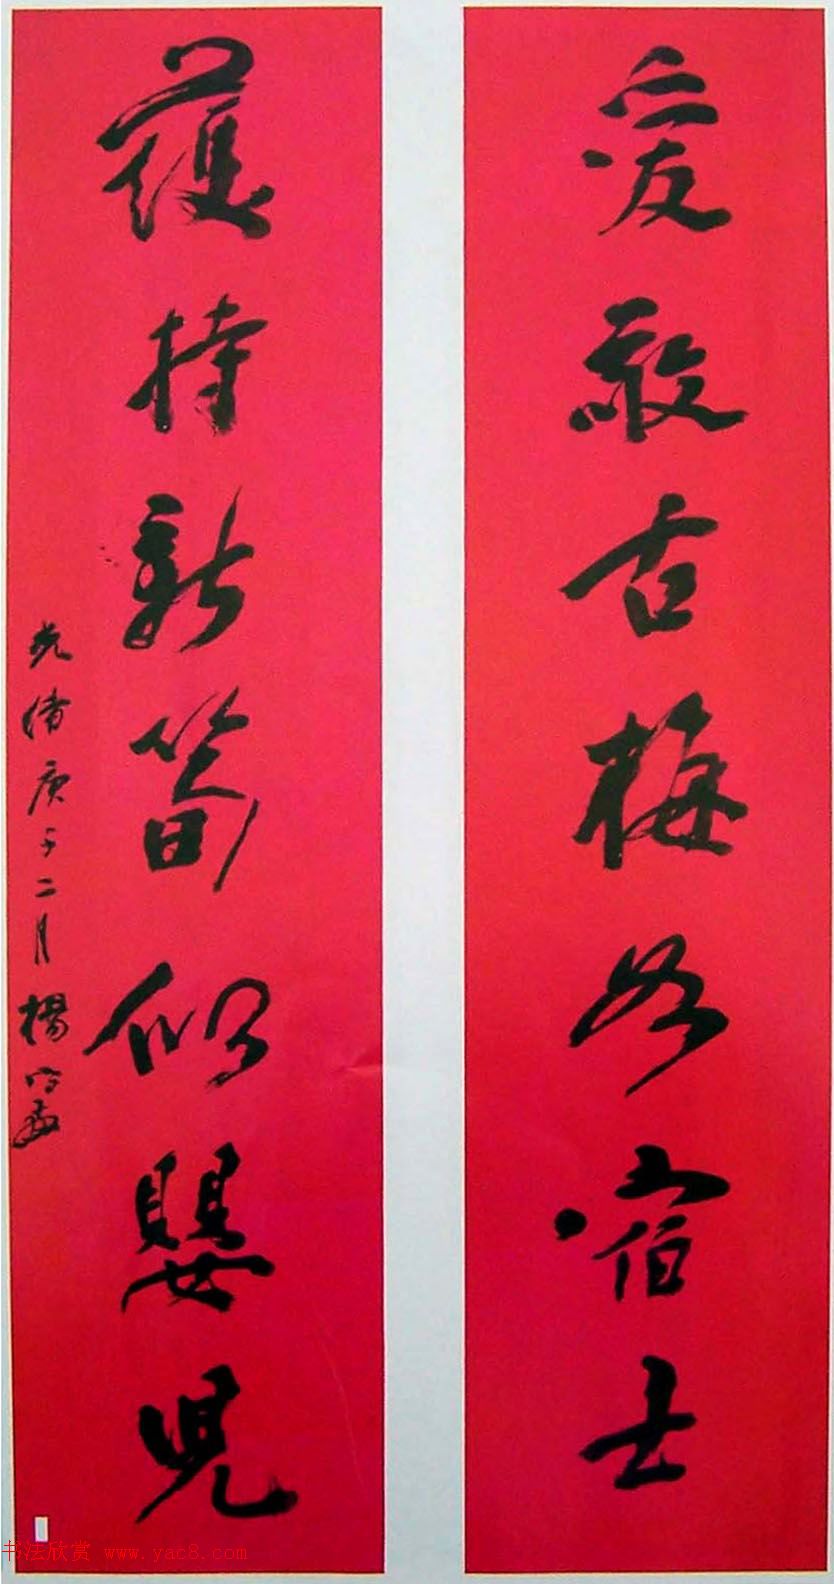 爱敬古梅如宿士
護持新筍似嬰兒
光緒庚子二月楊守敬
书法欣赏 www.yac8.com